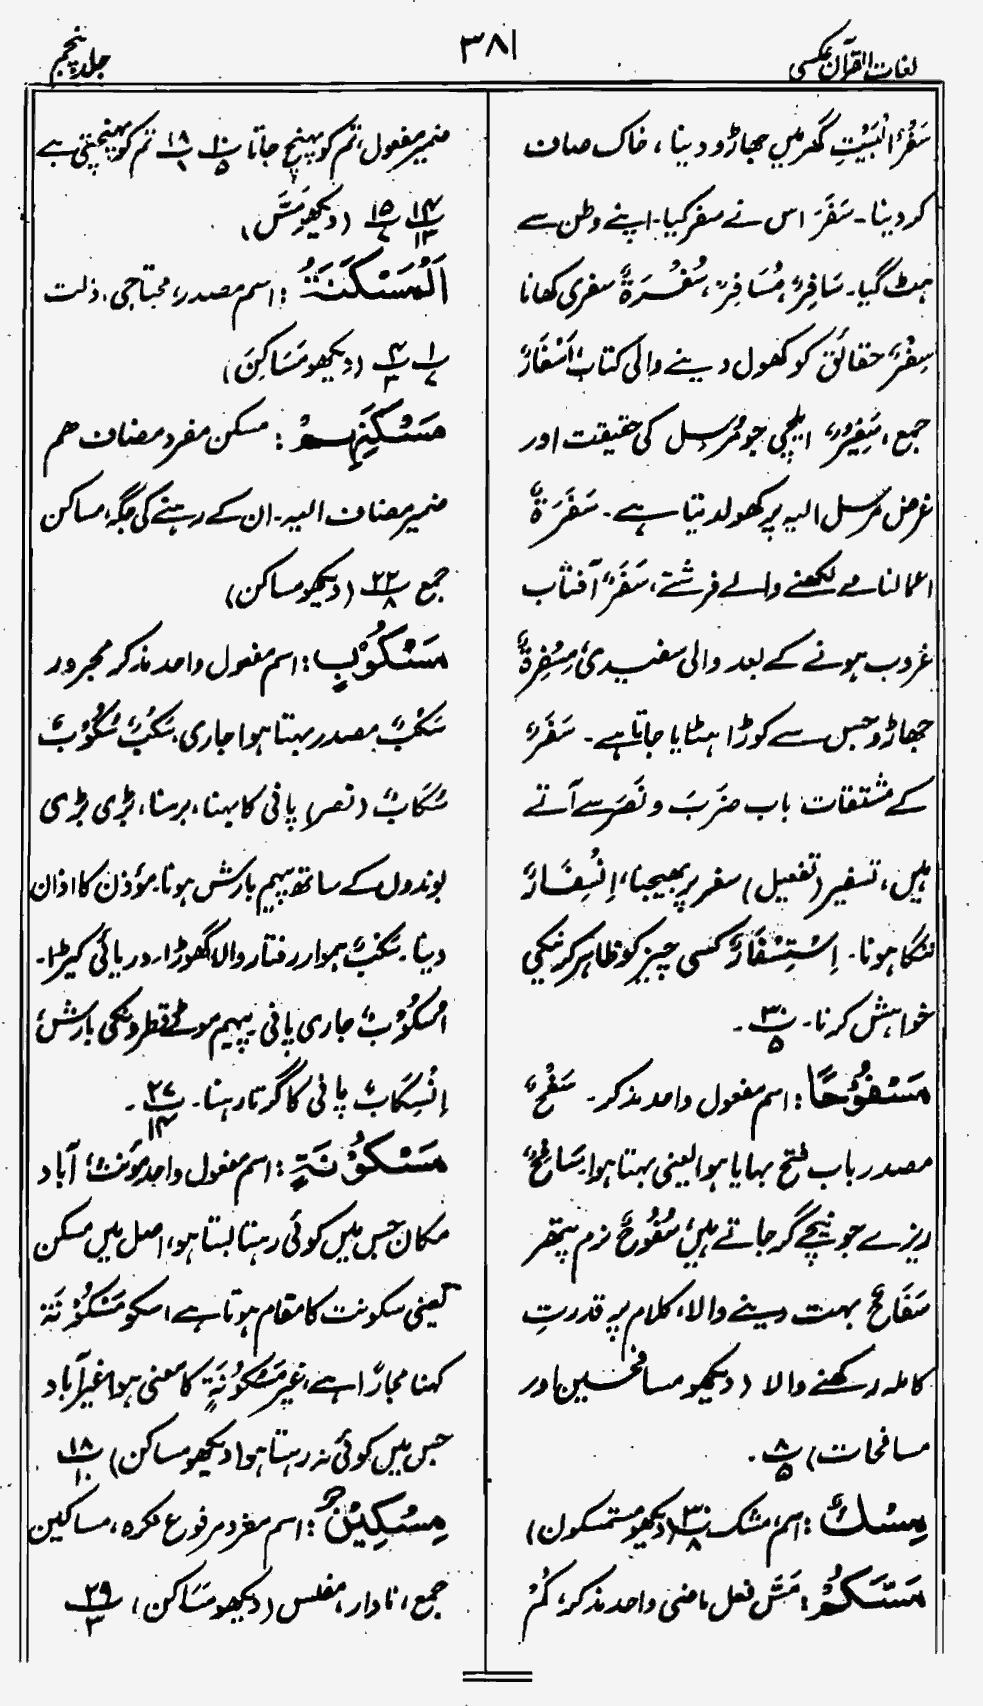 لغات القرآن عکسی
۳۸۱
جلد پنجم
سَفْرُ الْبَیْتِ گھر میں جھاڑو دینا، خاک صاف
کر دینا۔ سَفَرَ اس نے سفر کیا۔ اپنے وطن سے
ہٹ گیا۔ سَافِرٌ، مُسَافِرٌ، سُفْرَۃٌ سفری کھانا
سِفْرٌ حقائق کو کھول دینے والی کتاب، اَسْفَارٌ
جمع، سَفِیْرٌ، ایلچی جو مُرسِل کی حقیقت اور
غرض مُرسل الیہ پر کھولدیتا ہے۔ سَفَرَۃٌ
اعمالنامے لکھنے والے فرشتے، سَفَرٌ آفتاب
غروب ہونے کے بعد والی سفیدی، مِسْفَرَۃٌ
جھاڑو جس سے کوڑا ہٹایا جاتا ہے۔ سَفَرٌ
کے مشتقات باب ضَرَبَ و نَصَرَ سے آتے
ہیں، تسفیر (تفعیل) سفر پر بھیجنا، اِنْسِفَارٌ
ننگا ہونا۔ اِسْتِسْفَارٌ کسی چیز کو ظاہر کرنیکی
خواہش کرنا۔ ۳۰/۵ ۔
مَسْفُوْحًا: اسم مفعول واحد مذکر۔ سَفْحٌ
مصدر باب فتح بہایا ہوا یعنی بہتا ہوا۔ سَافِحٌ
ریزے جو نیچے گر جاتے ہیں، سُفُوْحٌ نرم پتھر
سَفَّاحٌ بہت دینے والا، کلام پر قدرتِ
کاملہ رکھنے والا (دیکھو مسافحین اور
مسافحات) ۸/۵ ۔
مِسْكٌ: اسم، مشک ۳۰/۸ (دیکھو مستمسکون)
مَسَّكُمْ: مَسَّ فعل ماضی واحد مذکر، کُمْ
ضمیر مفعول، تم کو پہنچ جاتا ۱۰/۵ ۱۸/۸ تم کو پہنچتی ہے
۱۴/۱۳ ۱۵/۷ (دیکھو مَسَّ)
اَلْمَسْكَنَةُ: اسم مصدر، محتاجی، ذلت
۱/۷ ۴/۳ (دیکھو مَسَاکِنَ)
مَسْكَنِهِمْ: مسکن مفرد مضاف ھم
ضمیر مضاف الیہ۔ ان کے رہنے کی جگہ، مساکن
جمع ۲۲/۸ (دیکھو مساکن)
مَسْكُوْبٍ: اسم مفعول واحد مذکر مجرور
سَکْبٌ مصدر بہتا ہوا جاری، سَکْبٌ سُکُوْبٌ
سَکَابٌ (نصر) پانی کا بہنا، برسنا، بڑی بڑی
بوندوں کے ساتھ پیہم بارش ہونا۔ مؤذن کا اذان
دینا۔ سَکْبٌ ہموار رفتار والا گھوڑا۔ دریائی کیڑا۔
اُسْکُوْبٌ جاری پانی۔ پیہم موٹے قطرونکی بارش،
اِنْسِکَابٌ پانی کا گرتا رہنا۔ ۲۷/۱۴ ۔
مَسْكُوْنَةٍ: اسم مفعول واحد مؤنث، آباد
مکان جس میں کوئی رہتا بستا ہو، اصل میں مسکن
یعنی سکونت کا مقام ہوتا ہے اسکو مَسْکُوْنَۃٌ
کہنا مجازًا ہے، غیر مَسْکُوْنَۃٍ کا معنی ہوا غیر آباد
جس میں کوئی نہ رہتا ہو (دیکھو مساکن) ۱۸/۱۰
مِسْكِيْنٌ: اسم مفرد مرفوع نکرہ، مساکین
جمع، نادار، مفلس (دیکھو مَسَاکن) ۲۹/۳